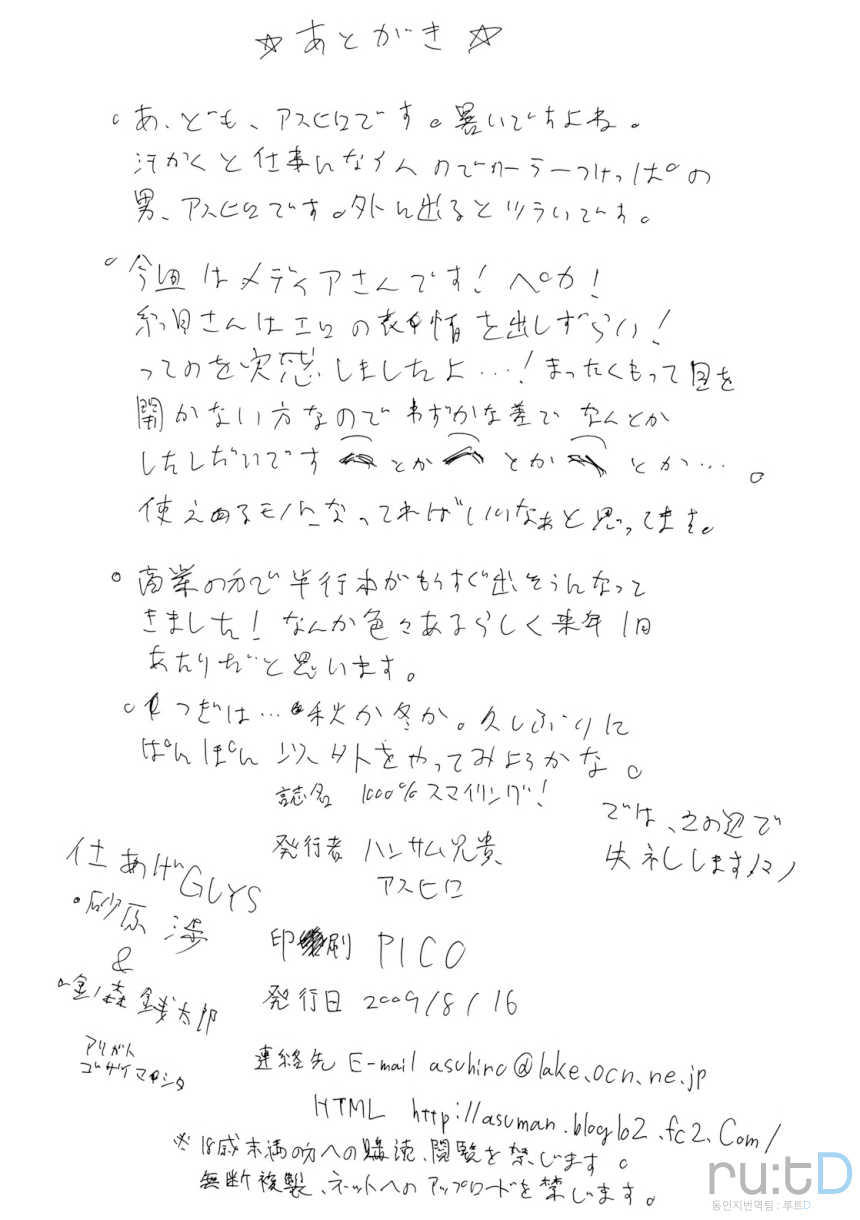 ☆あとがき☆
。あ、ども、アスヒロです。暑いですよね。
汗かくと仕事になんないのでクーラーつけっぱの
男、アスヒロです。外に出るとツライです。
。今回はメディアさんです！ペカ！
糸目さんはエロの表情を出しずらい！
ってのを実感しましたよ…！まったくもって目を
開かない方なのでわずかな差でなんとか
したしだいです とか とか とか…。
使えめるモノになってればいいなぁと思ってます。
。商業の方で単行本がもうすぐ出そうんなって
きました！なんか色々あるらしく来年1月
あたりだと思います。
。つぎは…秋か冬か。久しぶりに
ぱんぽん以外をやってみようかな。
誌名 1000%スマイリング！
では、この辺で
失礼しますノシノ
発行者 ハンサム兄貴
アスヒロ
仕あげGUYS
・砂原 渉
&
・金ノ森 銭太郎
アリガト
ゴザイマシタ
印刷 PICO
発行日 2009/8/16
連絡先 E-mail asuhiro@lake.ocn.ne.jp
HTML http://asuman.blog102.fc2.Com/
※18歳未満の方への購読、閲覧を禁じます。
無断複製、ネットへのアップロードを禁じます。
ru:tD
동인지번역팀 : 루트D